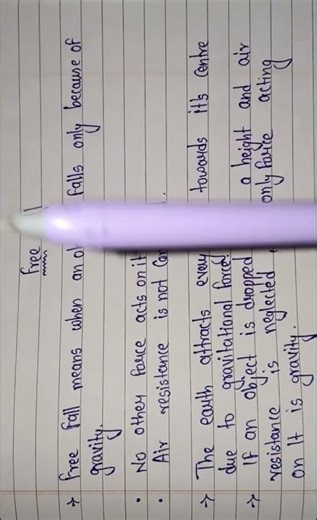 Free
→ Free fall means when an falls only because of
gravity.
• No other force acts on it
• Air resistance is not
→ The earth attracts every towards it's centre
due to gravitational force.
→ If an object is dropped a height and air
resistance is neglected only force acting
on It is gravity.